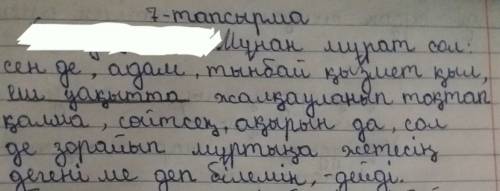 7-тапсырма
Мұнан мұрат сол:
сен де, адам, тынбай қызмет қыл,
еш уақытта жалқауланып тоқтап
қалма, сөйтсең, ақырын да, сол
де зорайып мұртыңа жетесің
дегені ме деп білемін, -дейді.